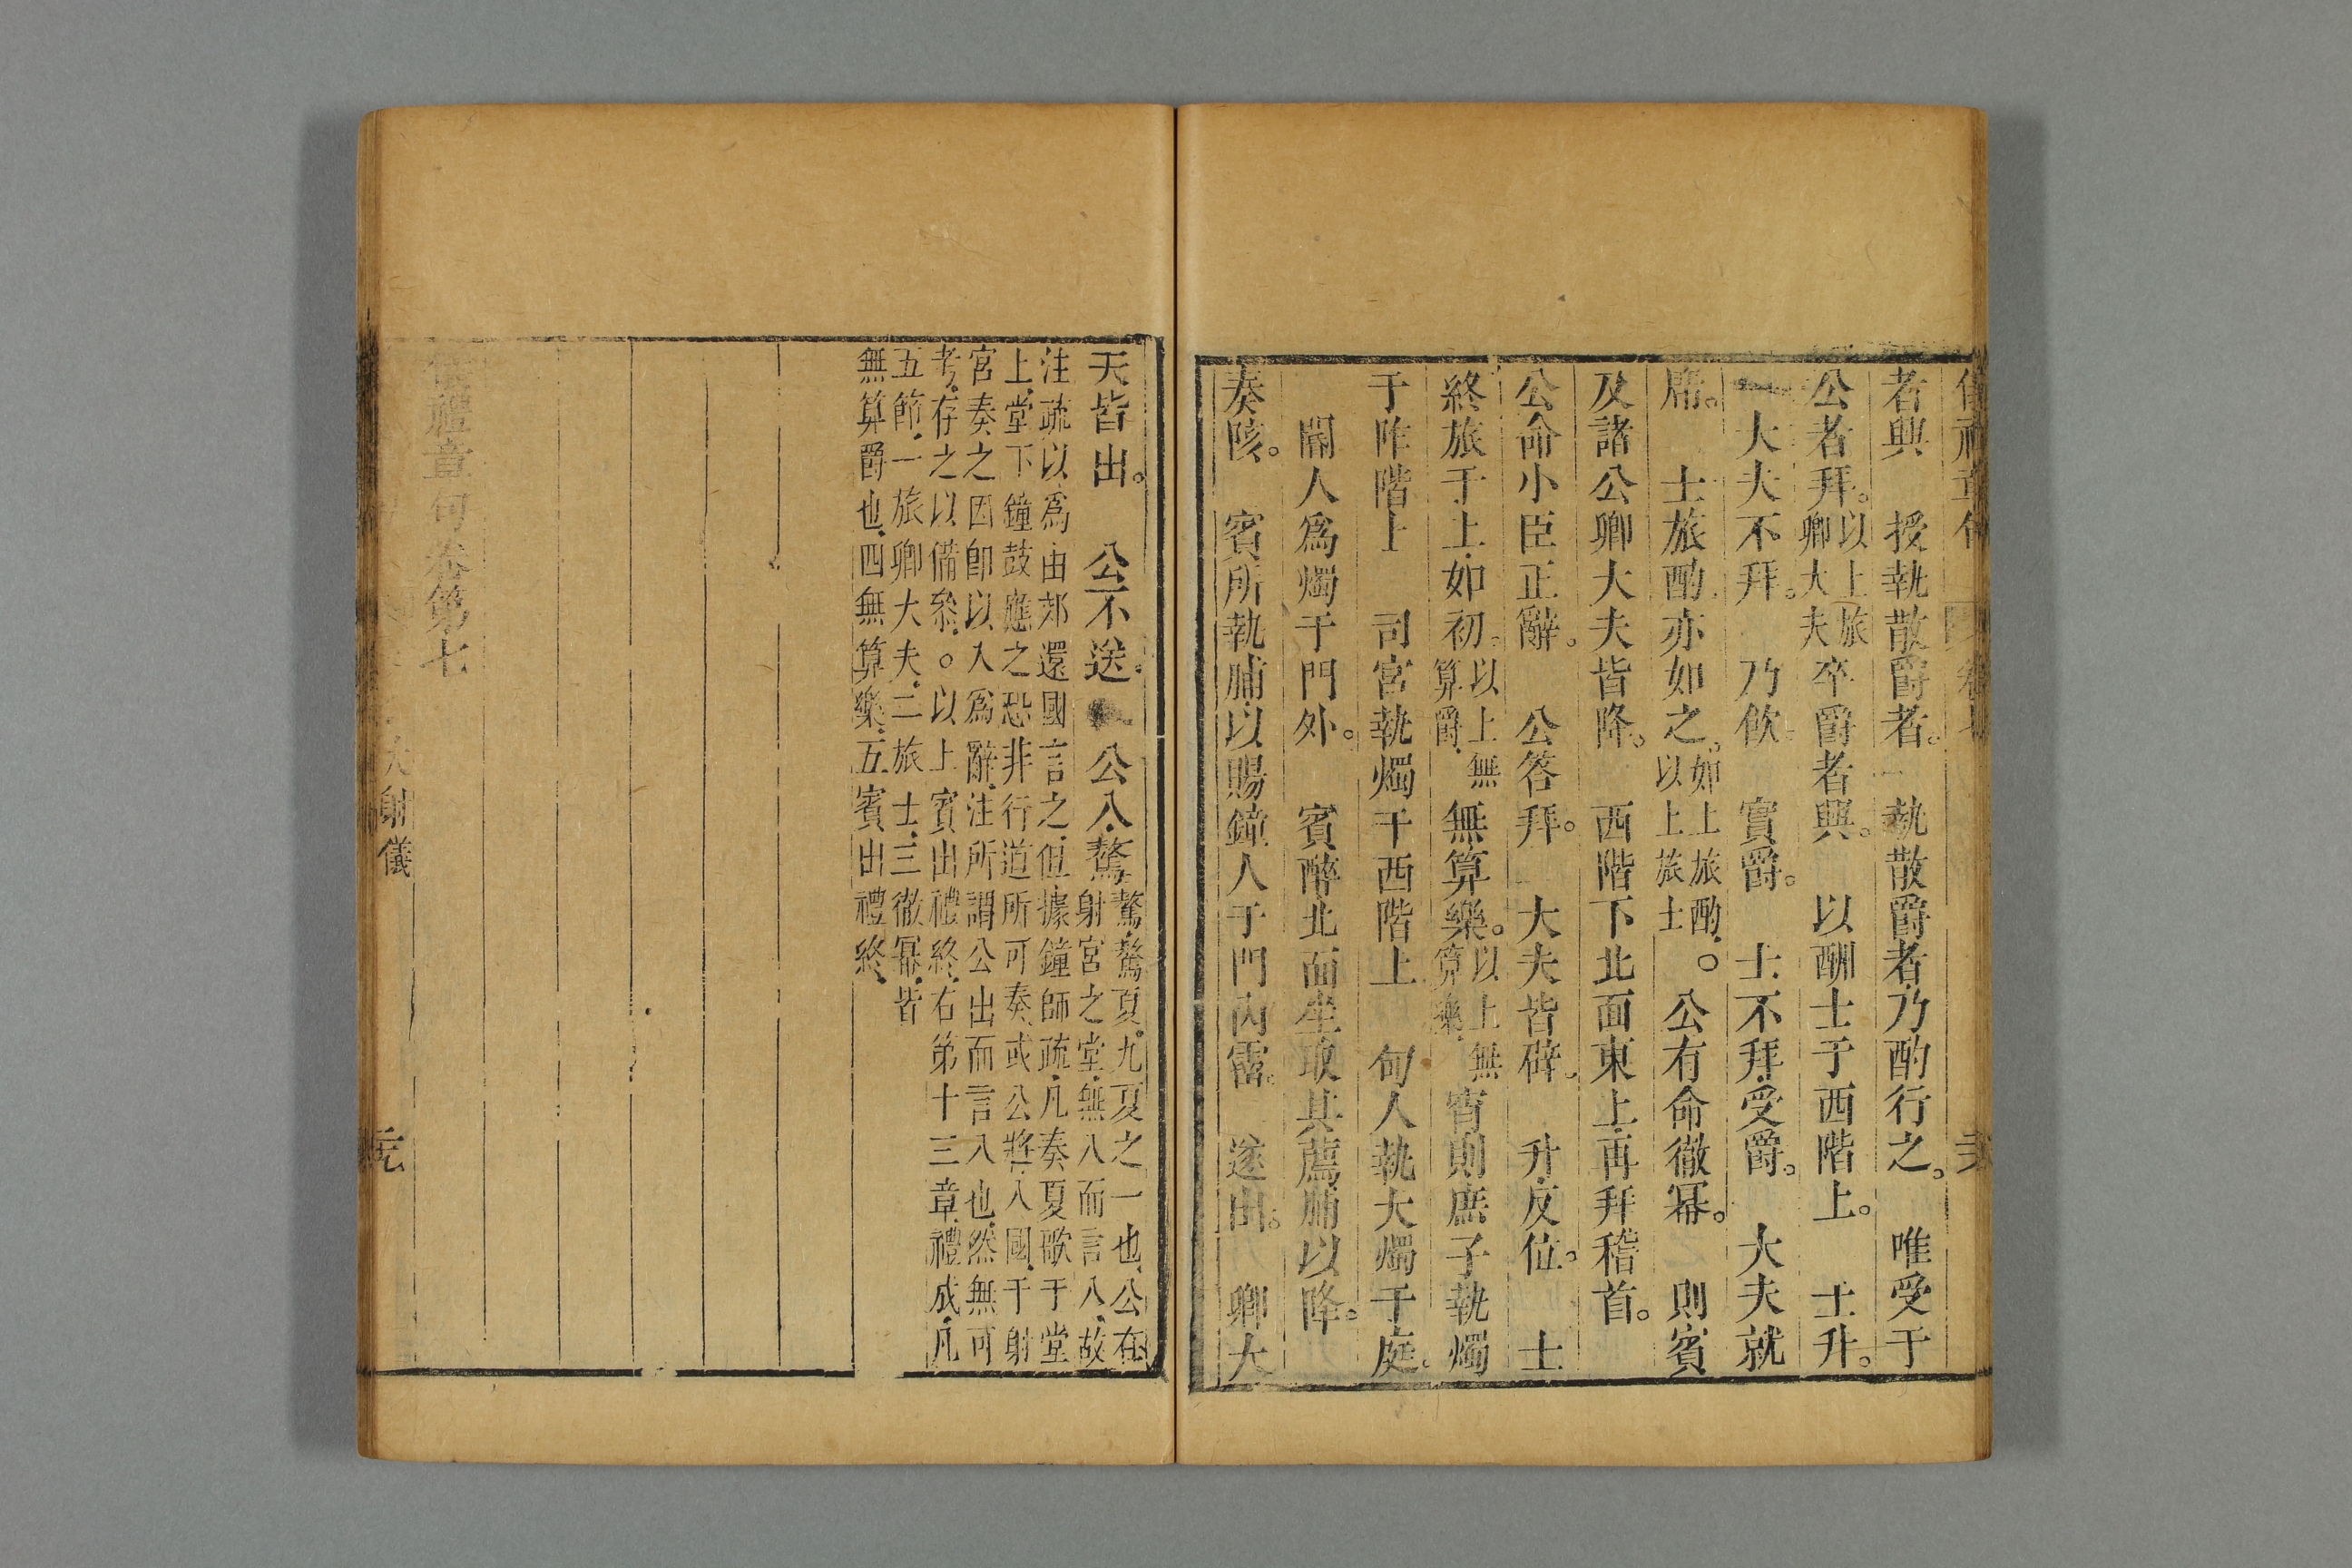 者興　授執散爵者。　執散爵者乃酌行之。　唯受于
公者拜。以上旅卿大夫　卒爵者興。　以酬士于西階上。　士升。
大夫不拜。　乃飲　實爵。　士不拜受爵。　大夫就
席。　士旅酌亦如之。如上旅酌以上旅士。○公有命徹冪。　則賓
及諸公卿大夫皆降。　西階下北面東上再拜稽首。
公命小臣正辭。　公答拜。　大夫皆辟。　升反位。　士
終旅于上如初。以上無算爵　無算樂。以上無算樂　宵則庶子執燭
于阼階上　司宮執燭于西階上　甸人執大燭于庭。
閽人爲燭于門外。　賓醉北面坐取其薦脯以降。
奏陔。　賓所執脯以賜鐘人于門內霤。　遂出。　卿大
夫皆出。　公不送。　公入驁
驁驁夏九夏之一也公在
射宮之堂無入而言入故
注疏以爲由郊還國言之但據鐘師疏凡奏夏歌于堂
上堂下鐘鼓應之恐非行道所可奏或公將入國于射
宮奏之因卽以入爲辭注所謂公出而言入也然無可
考存之以備叅○以上賓出禮終右第十三章禮成凡
五節一旅卿大夫二旅士三徹冪皆
無算爵也四無算樂五賓出禮終
儀禮章句卷第七
大射儀